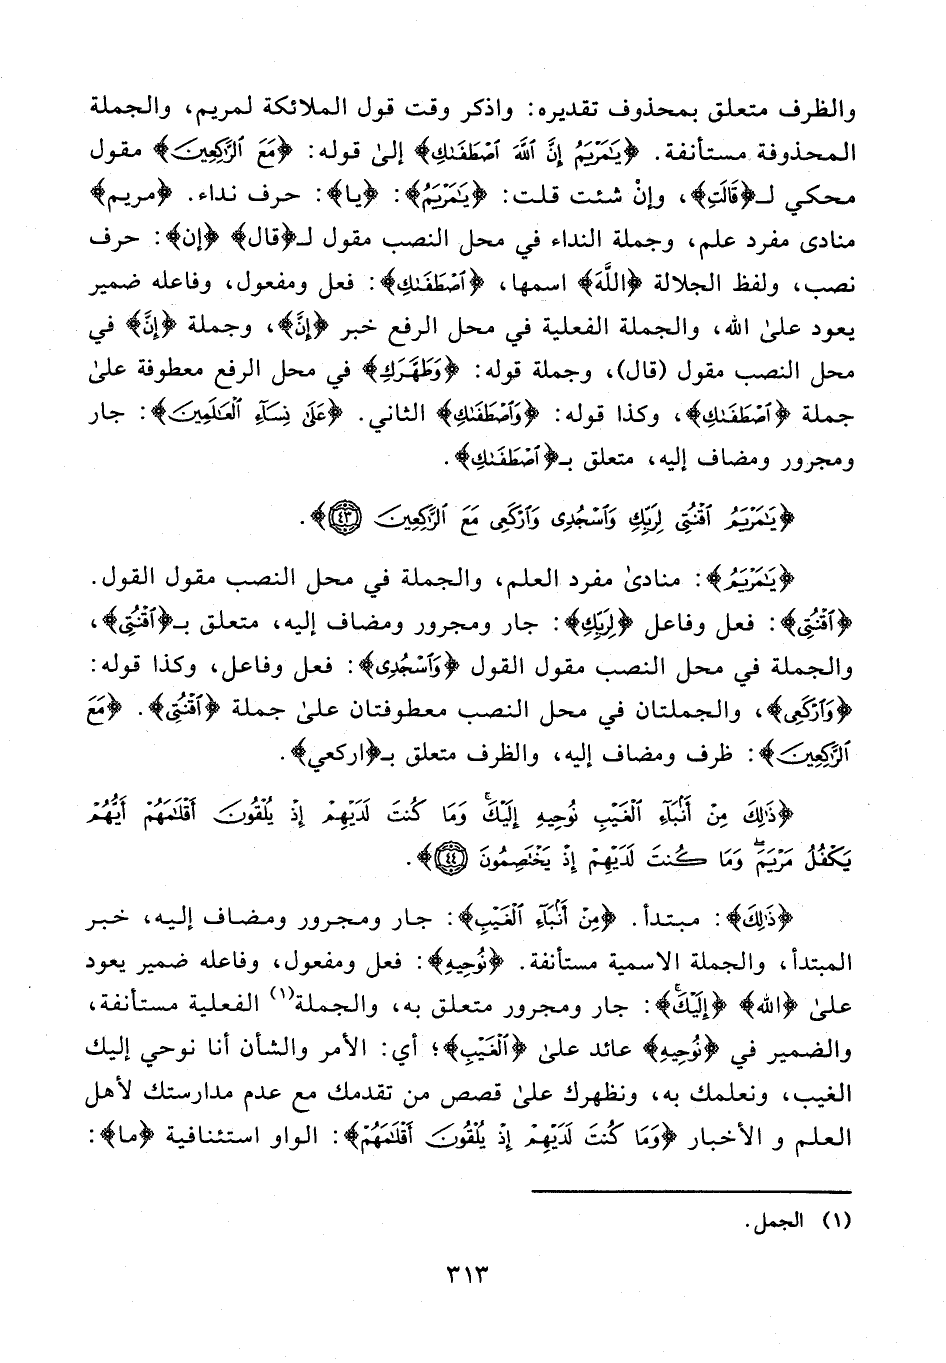 والظرف متعلق بمحذوف تقديره: واذكر وقت قول الملائكة لمريم، والجملة
المحذوفة مستأنفة. ﴿يَٰمَرْيَمُ إِنَّ ٱللَّهَ ٱصْطَفَىٰكِ﴾ إلىٰ قوله: ﴿مَعَ ٱلرَّٰكِعِينَ﴾ مقول
محكي لـ﴿قَالَتِ﴾، وإنْ شئت قلت: ﴿يَٰمَرْيَمُ﴾: ﴿يا﴾: حرف نداء. ﴿مريم﴾
منادى مفرد علم، وجملة النداء في محل النصب مقول لـ﴿قال﴾ ﴿إن﴾: حرف
نصب، ولفظ الجلالة ﴿اللَّهَ﴾ اسمها، ﴿ٱصْطَفَىٰكِ﴾: فعل ومفعول، وفاعله ضمير
يعود علىٰ الله، والجملة الفعلية في محل الرفع خبر ﴿إِنَّ﴾، وجملة ﴿إِنَّ﴾ في
محل النصب مقول (قال)، وجملة قوله: ﴿وَطَهَّرَكِ﴾ في محل الرفع معطوفة علىٰ
جملة ﴿ٱصْطَفَىٰكِ﴾، وكذا قوله: ﴿وَٱصْطَفَىٰكِ﴾ الثاني. ﴿عَلَىٰ نِسَآءِ ٱلْعَٰلَمِينَ﴾: جار
ومجرور ومضاف إليه، متعلق بـ﴿ٱصْطَفَىٰكِ﴾.
﴿يَٰمَرْيَمُ ٱقْنُتِى لِرَبِّكِ وَٱسْجُدِى وَٱرْكَعِى مَعَ ٱلرَّٰكِعِينَ ٤٣﴾.
﴿يَٰمَرْيَمُ﴾: منادىٰ مفرد العلم، والجملة في محل النصب مقول القول.
﴿ٱقْنُتِى﴾: فعل وفاعل ﴿لِرَبِّكِ﴾: جار ومجرور ومضاف إليه، متعلق بـ﴿ٱقْنُتِى﴾،
والجملة في محل النصب مقول القول ﴿وَٱسْجُدِى﴾: فعل وفاعل، وكذا قوله:
﴿وَٱرْكَعِى﴾، والجملتان في محل النصب معطوفتان علىٰ جملة ﴿ٱقْنُتِى﴾. ﴿مَعَ
ٱلرَّٰكِعِينَ﴾: ظرف ومضاف إليه، والظرف متعلق بـ﴿اركعي﴾.
﴿ذَٰلِكَ مِنْ أَنۢبَآءِ ٱلْغَيْبِ نُوحِيهِ إِلَيْكَ ۚ وَمَا كُنتَ لَدَيْهِمْ إِذْ يُلْقُونَ أَقْلَٰمَهُمْ أَيُّهُمْ
يَكْفُلُ مَرْيَمَ وَمَا كُنتَ لَدَيْهِمْ إِذْ يَخْتَصِمُونَ ٤٤﴾.
﴿ذَٰلِكَ﴾: مبتدأ. ﴿مِنْ أَنۢبَآءِ ٱلْغَيْبِ﴾: جار ومجرور ومضاف إليه، خبر
المبتدأ، والجملة الاسمية مستأنفة. ﴿نُوحِيهِ﴾: فعل ومفعول، وفاعله ضمير يعود
علىٰ ﴿الله﴾ ﴿إِلَيْكَ ۚ﴾: جار ومجرور متعلق به، والجملة(١) الفعلية مستأنفة،
والضمير في ﴿نُوحِيهِ﴾ عائد علىٰ ﴿ٱلْغَيْبِ﴾؛ أي: الأمر والشأن أنا نوحي إليك
الغيب، ونعلمك به، ونظهرك علىٰ قصص من تقدمك مع عدم مدارستك لأهل
العلم و الأخبار ﴿وَمَا كُنتَ لَدَيْهِمْ إِذْ يُلْقُونَ أَقْلَٰمَهُمْ﴾: الواو استئنافية ﴿ما﴾:
(١) الجمل.
٣١٣